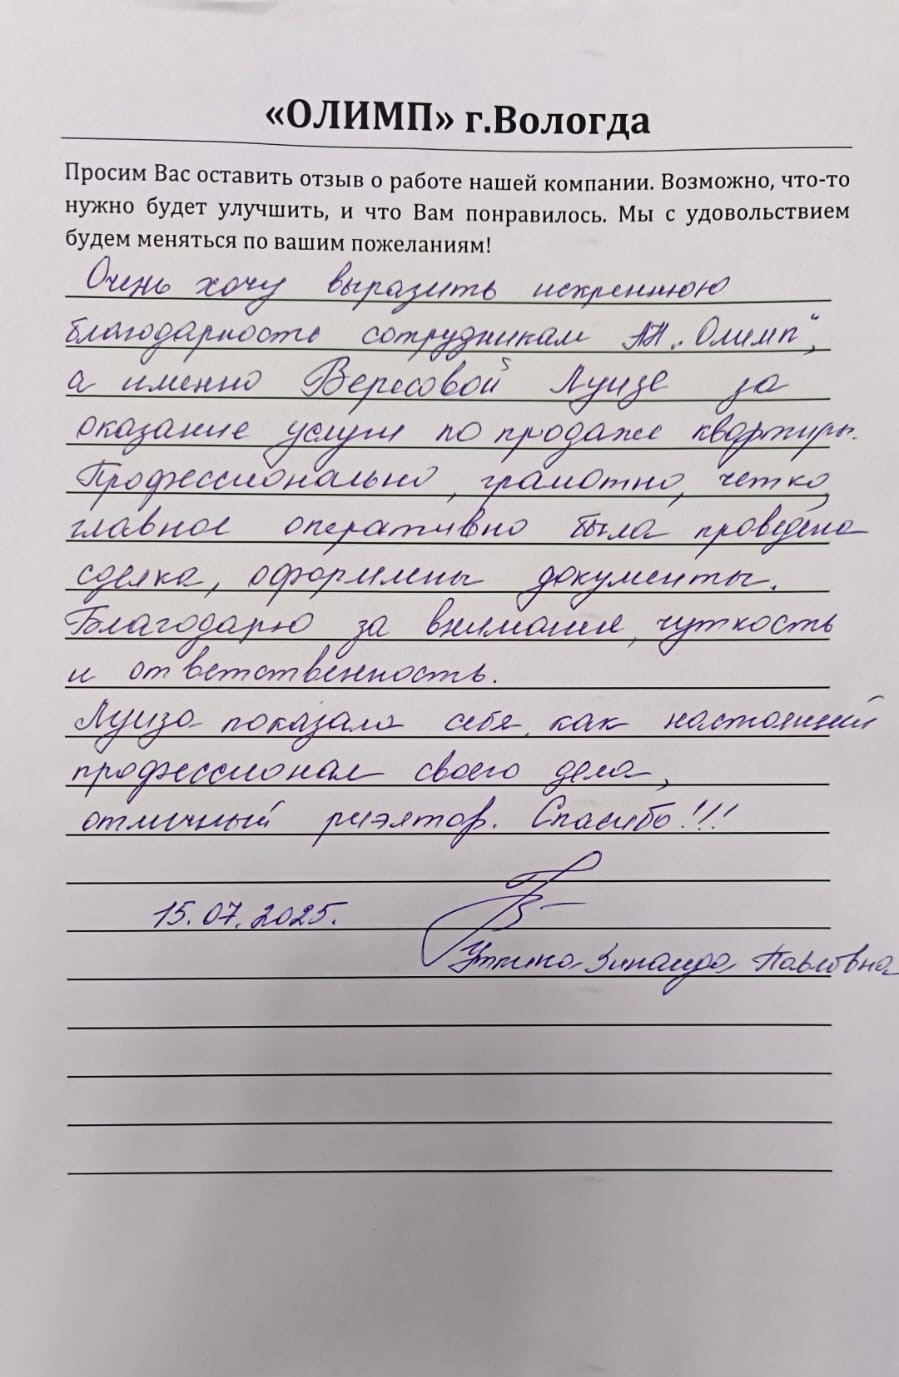 «ОЛИМП» г.Вологда
Просим Вас оставить отзыв о работе нашей компании. Возможно, что-то
нужно будет улучшить, и что Вам понравилось. Мы с удовольствием
будем меняться по вашим пожеланиям!
Очень хочу выразить искреннюю
благодарность сотрудникам АН „Олимп",
а именно Вересовой Луизе за
оказание услуги по продаже квартиры.
Профессионально, грамотно, четко,
главное оперативно была проведена
сделка, оформлены документы.
Благодарю за внимание, чуткость
и ответственность.
Луиза показала себя, как настоящий
профессионал своего дела,
отличный риэлтор. Спасибо!!!
15.07.2025.
Уткина Зинаида Павловна